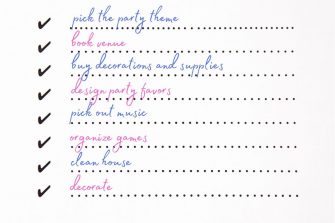 pick the party theme
book venue
buy decorations and supplies
design party favors
pick out music
organize games
clean house
decorate